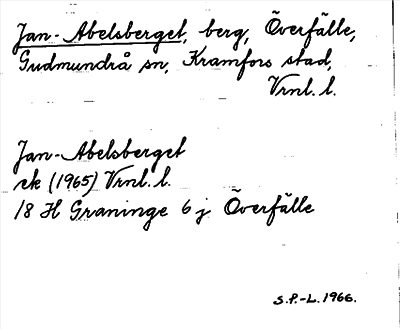 Jan-Abelsberget, berg, Överfälle,
Gudmundrå sn, Kramfors stad,
Vrnl. l.
Jan-Abelsberget
ek (1965) Vrnl. l.
18 H Graninge 6 j Överfälle
S.P.-L. 1966.